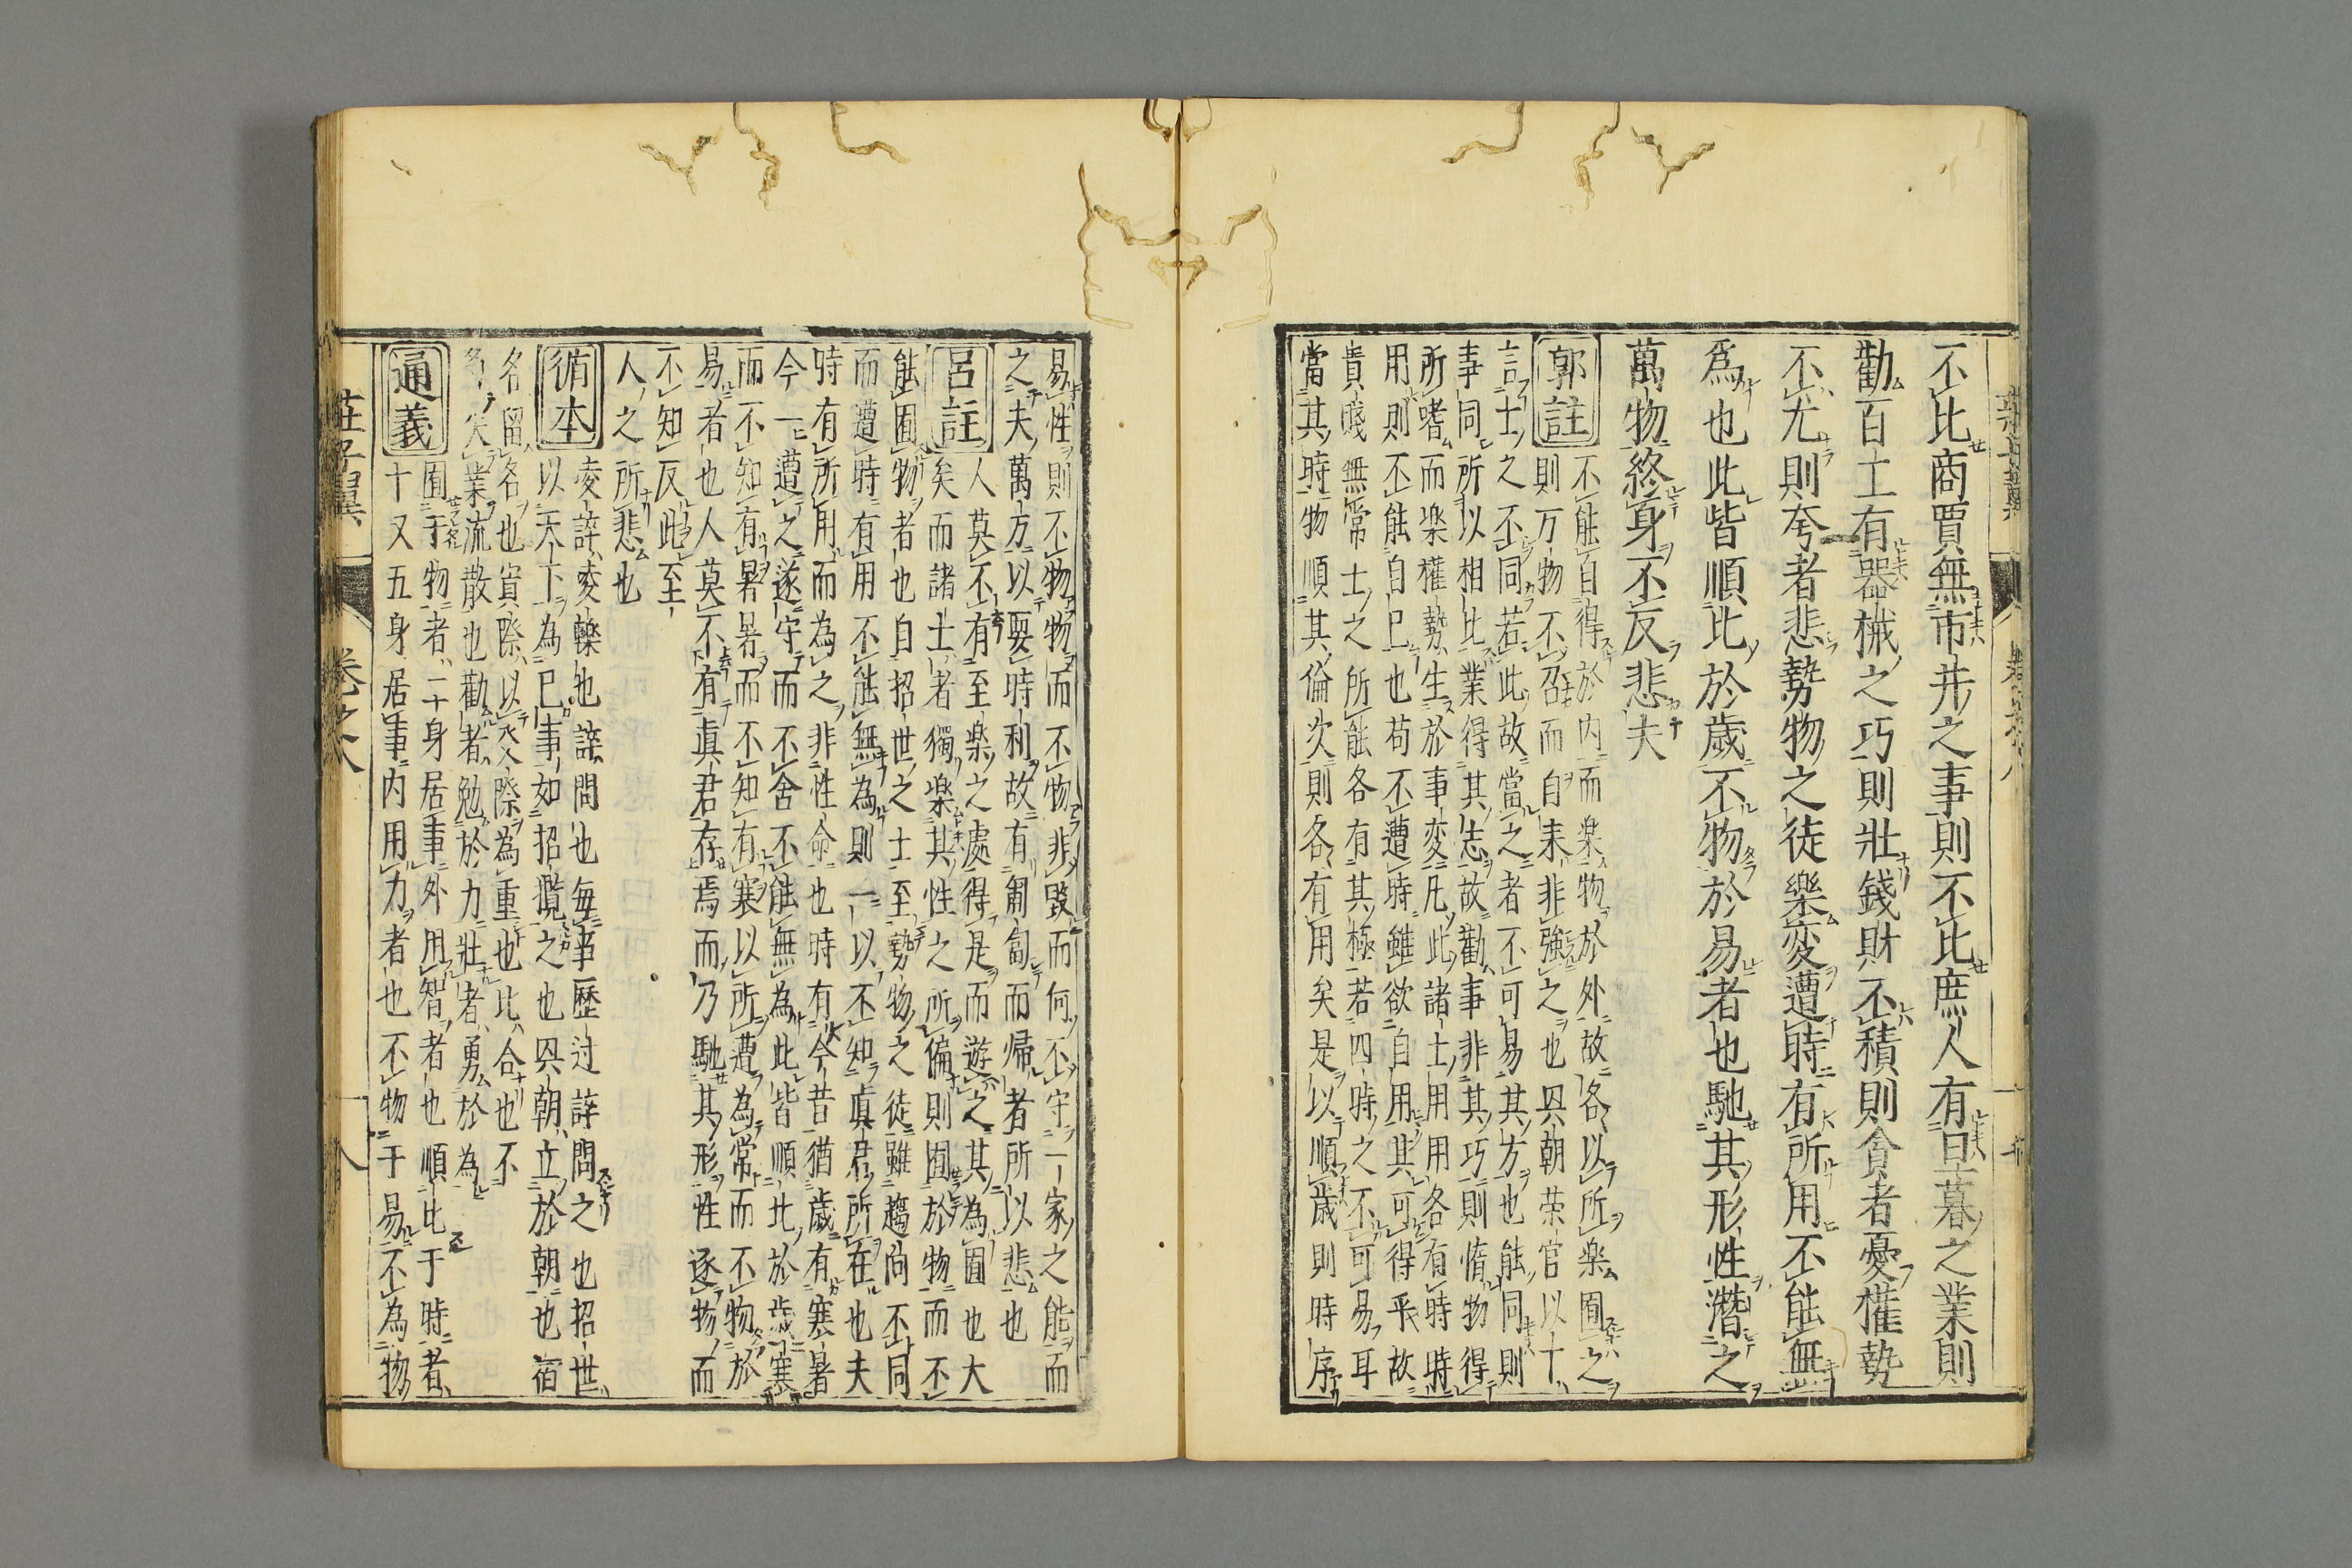 不比商賈無市井之事則不比庶人有旦暮之業則
勸百工有器械之巧則壯錢財不積則貪者憂權勢
不尤則夸者悲勢物之徒樂変遭時有所用不能無
爲也此皆順比於歲不物於易者也馳其形性潛之
萬物終身不反悲夫
郭註
不能自得於内而楽物於外故各以所楽囿之
則万物不召而自来非強之也㒷朝荣官以下
言士之不同若此故當之者不可易其方也能同則
事同所以相比業得其志故勸事非其巧則惰物得
所嗜而楽權勢生於事変凡此諸士用用各有時時
用則不能自已也苟不遭時雖欲自用其可得乎故
貴賤無常士之所能各有其極若四時之不可易耳
當其時物順其倫次則各有用矣是以順歲則時序
易性則不物物而不物非毀而何不守一家之能而
之夫萬方以要時利故有匍匐而帰者所以悲也
呂註
人莫不有至楽之處得是而遊之其為囿也大
矣而諸士者獨楽其性之所偏則囿於物而不
能囿物者也自招世之士至勢物之徒雖趨尚不同
而遭時有用不能無為則一以不知真君所在也夫
時有所用而為之非性命也時有今昔猶歲有寒暑
今一遭之遂守而不舍不能無為此皆順比於歲寒
而不知有暑暑而不知有寒以所遭為常而不物於
易者也人莫不有真君存焉而乃馳其形性逐物而
不知反此至
人之所悲也
循本
凌誶凌轢也誶問也毎事歷过誶問之也招世
以天下為已事如招攬之也㒷朝立於朝也宿
名留名也寊際以交際為重也比合也不
業流散也勸者勉於力壯者勇於為
通義
囿于物者一十身居事外用智者也順比于時者
十又五身居事内用力者也不物于易不為物
莊子翼
卷之六
十八